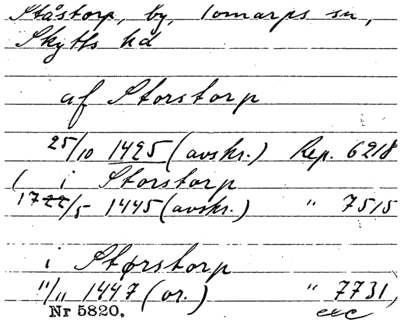 Ståstorp, by, Tomarps sn,
Skytts hd
af Storstorp
25/10 1425 (avskr.) Rep. 6218
( i Storstorp
17 22/5 1445 (avskr.) " 7515
i Størstorp
11/11 1447 (or.) " 7731,
Nr 5820. etc